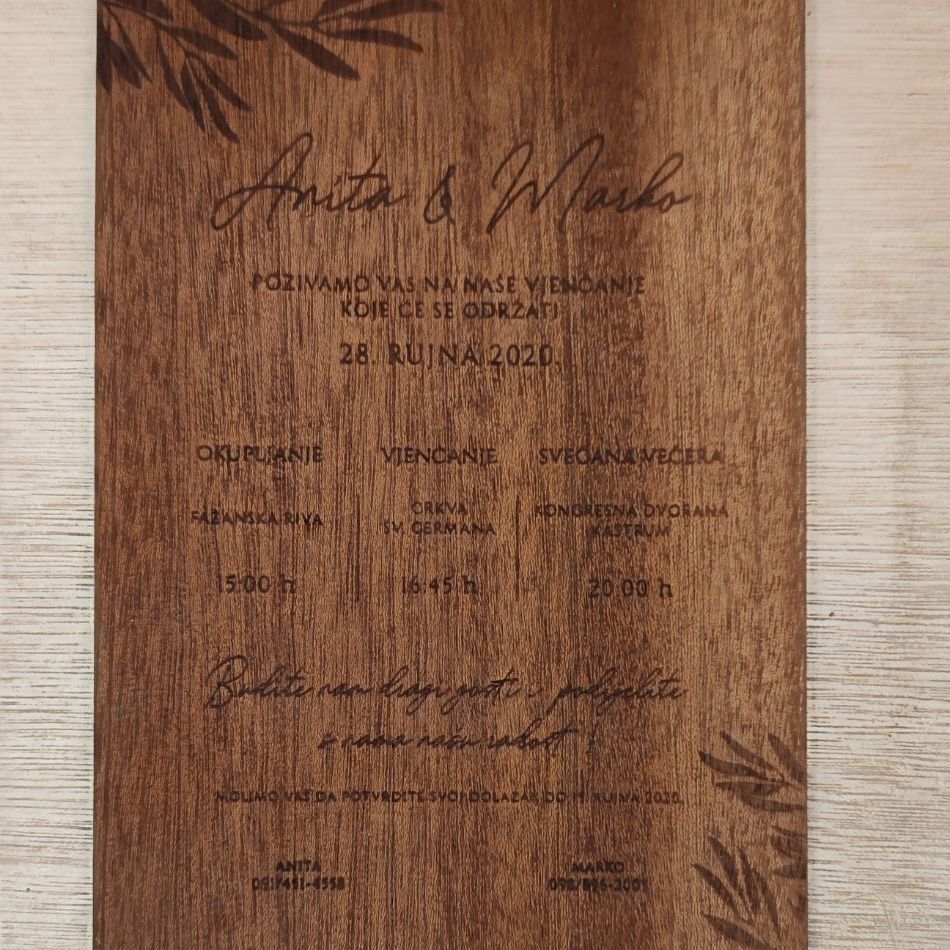 Anita & Marko
POZIVAMO VAS NA NAŠE VJENČANJE
KOJE ĆE SE ODRŽATI
28. RUJNA 2020.
OKUPLJANJE
FAŽANSKA RIVA
15:00 h
VJENČANJE
CRKVA
SV. GERMANA
16:45 h
SVEČANA VEČERA
KONGRESNA DVORANA
KASTRUM
20:00 h
Budite nam dragi gosti i podijelite
s nama našu radost
MOLIMO VAS DA POTVRDITE SVOJ DOLAZAK DO RUJNA 2020.
ANITA
MARKO